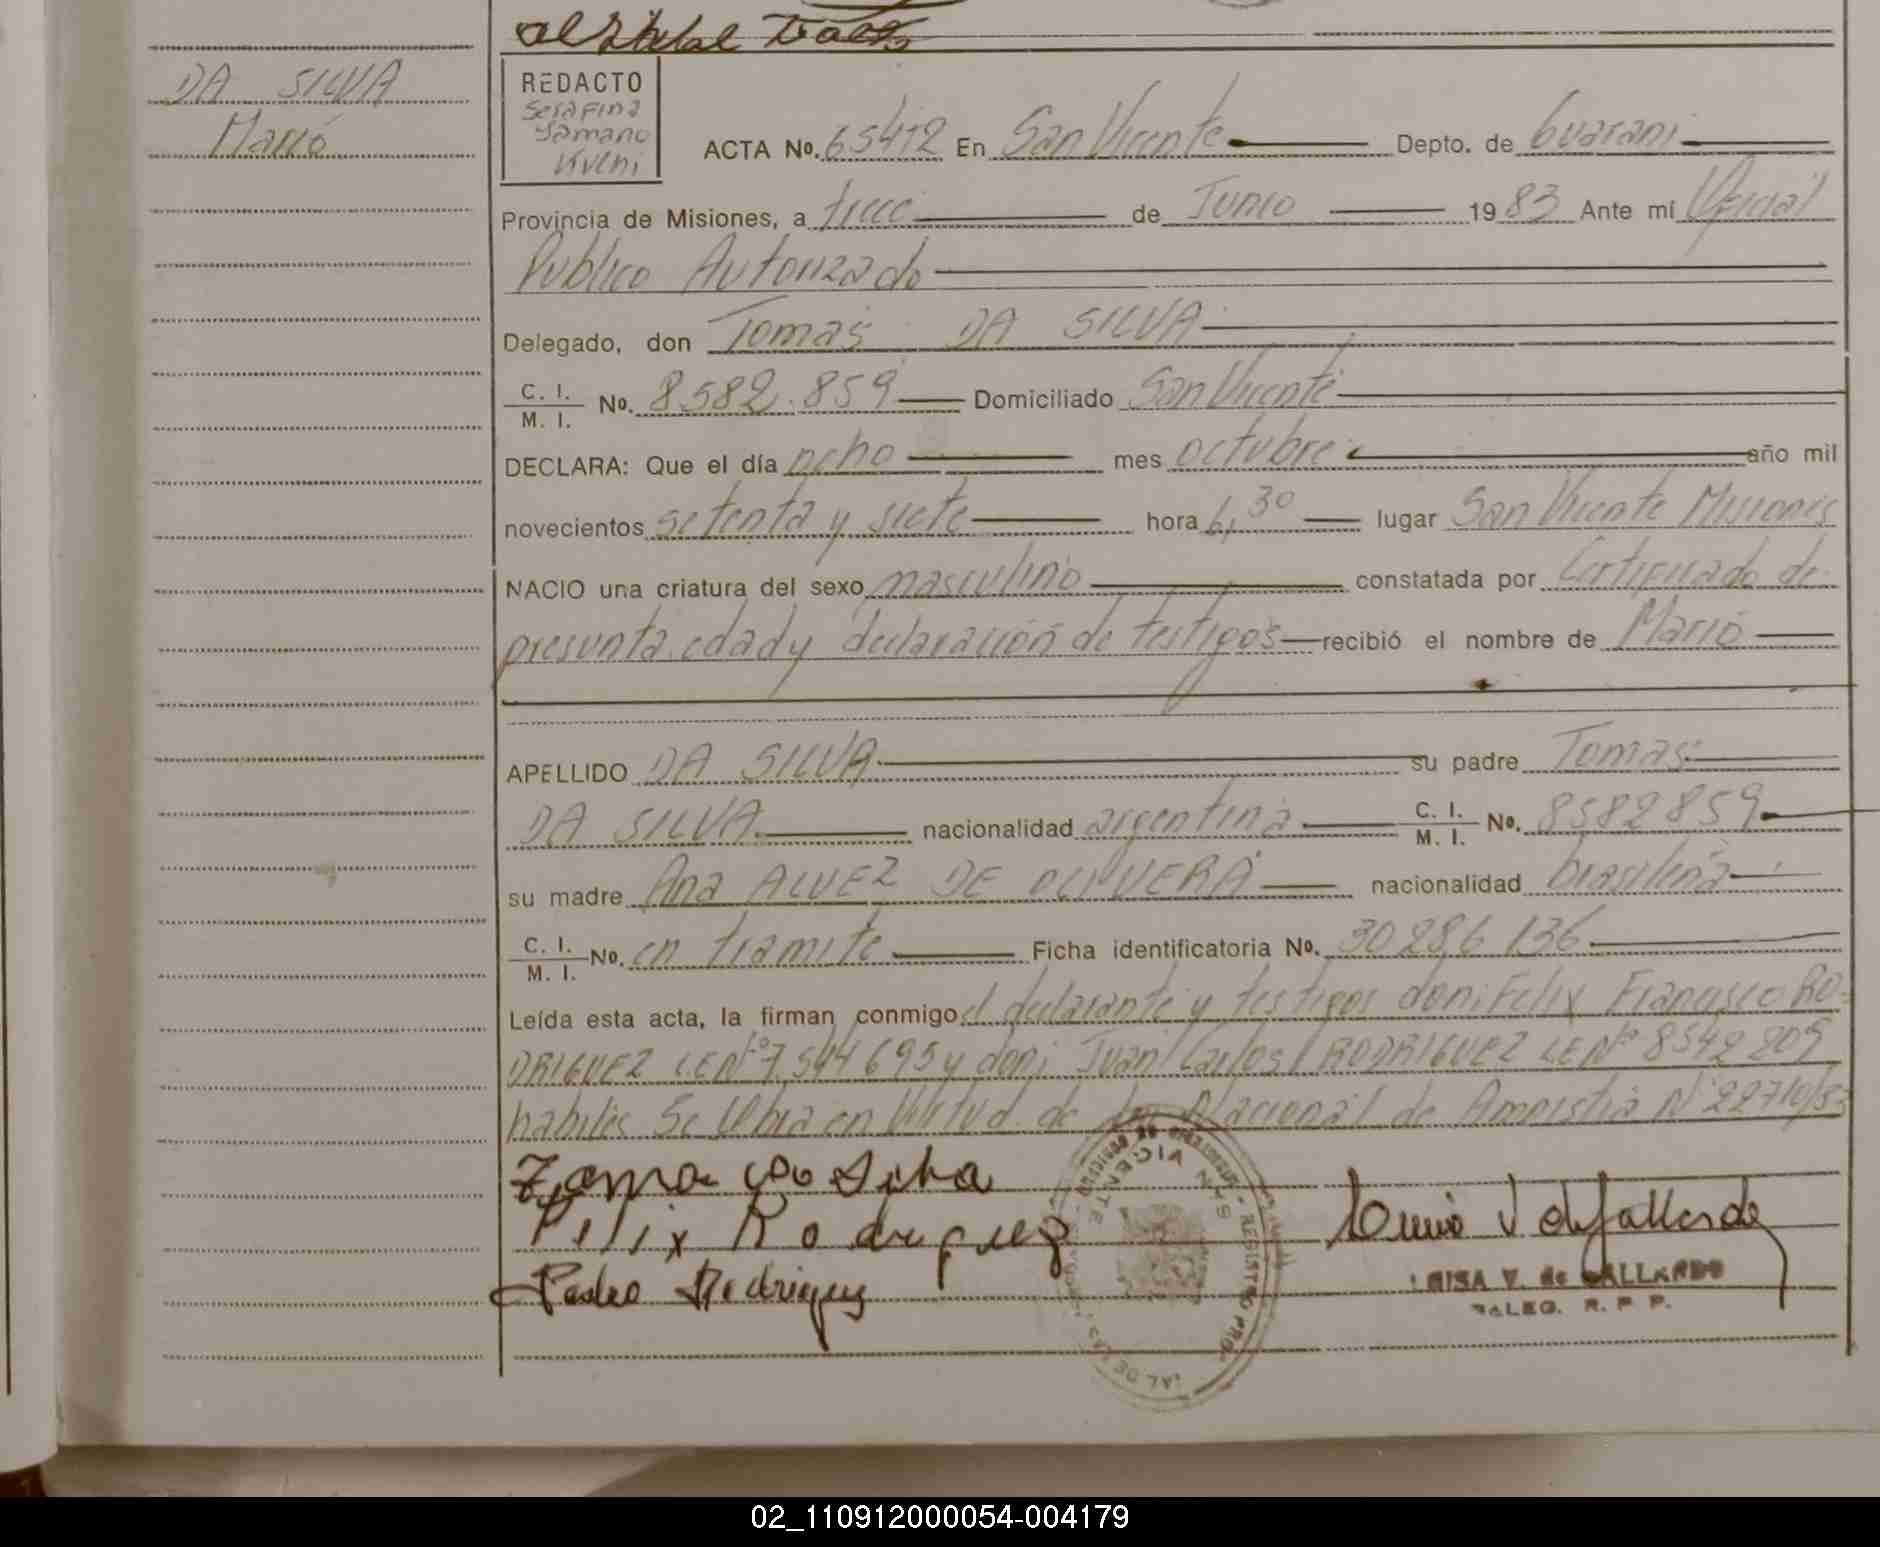 DA SILVA
Mario
REDACTO
Serafina
Samano
Kveni
ACTA No. 65412 En San Vicente Depto. de Guarani
Provincia de Misiones, a trece de Junio 1983 Ante mí Oficial
Publico Autorizado
Delegado, don Tomas DA SILVA
C. I.
M. I. No. 8582.859 Domiciliado San Vicente
DECLARA: Que el día ocho mes octubre año mil
novecientos setenta y siete hora 6,30 lugar San Vicente Misiones
NACIO una criatura del sexo masculino constatada por Certificado de
presunta edad y declaración de testigos recibió el nombre de Mario
APELLIDO DA SILVA su padre Tomas
DA SILVA nacionalidad argentina C. I. M. I. No. 8582859
su madre Ana ALVEZ DE OLIVERA nacionalidad brasileña
C. I. M. I. No. en tramite Ficha identificatoria No. 30 286 136
Leída esta acta, la firman conmigo el declarante y testigos don: Felix Francisco RO=
DRIGUEZ L.E Nº 7.544 695 y don: Juan Carlos RODRIGUEZ L.E Nº 8542 209
habiles Se labra en Virtud de Ley Nacional de Amnistia Nº 22710/83
Tomas da Silva
Felix Rodriguez
Pedro Rodriguez
SAN VICENTE
REGISTRO PRO
LUISA V. de GALLARDO
DELEG. R. P. P.
02_110912000054-004179